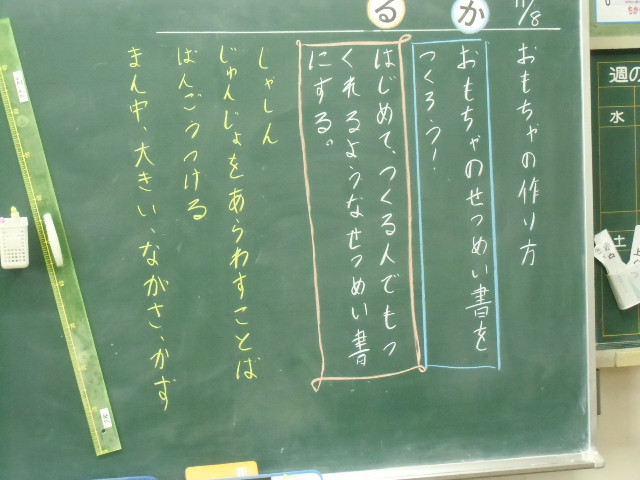 11/8
おもちゃの作り方
か
おもちゃのせつめい書を
つくろう!
る
はじめて、つくる人でもつ
くれるようなせつめい書
にする。
しゃしん
じゅんじょをあらわすことば
ばんごうつける
まん中、大きい、ながさ、かず
週の
水
土